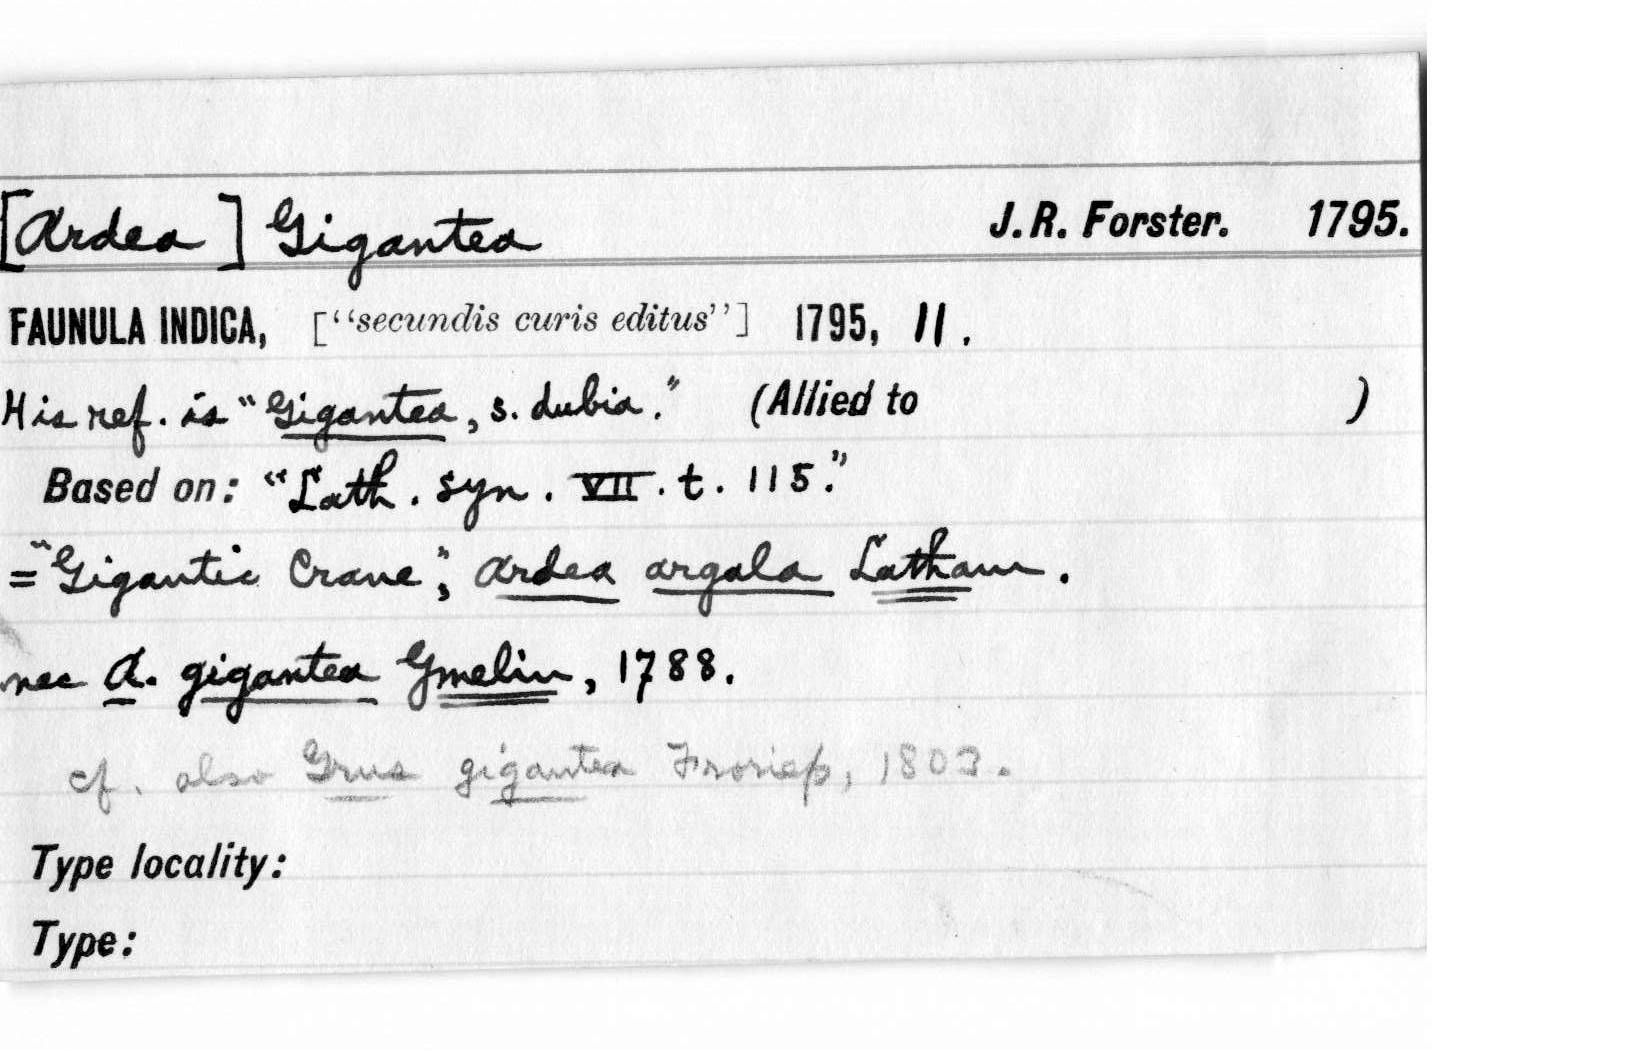 [Ardea] Gigantea J.R. Forster. 1795.
FAUNULA INDICA, [“secundis curis editus”] 1795, 11.
His ref. is “Gigantea, s. dubia.” (Allied to )
Based on: “Lath. syn. VII. t. 115.”
= “Gigantic Crane”; Ardea argala Latham.
nec A. gigantea Gmelin, 1788.
cf. also Grus gigantea Froriep, 1803.
Type locality:
Type: